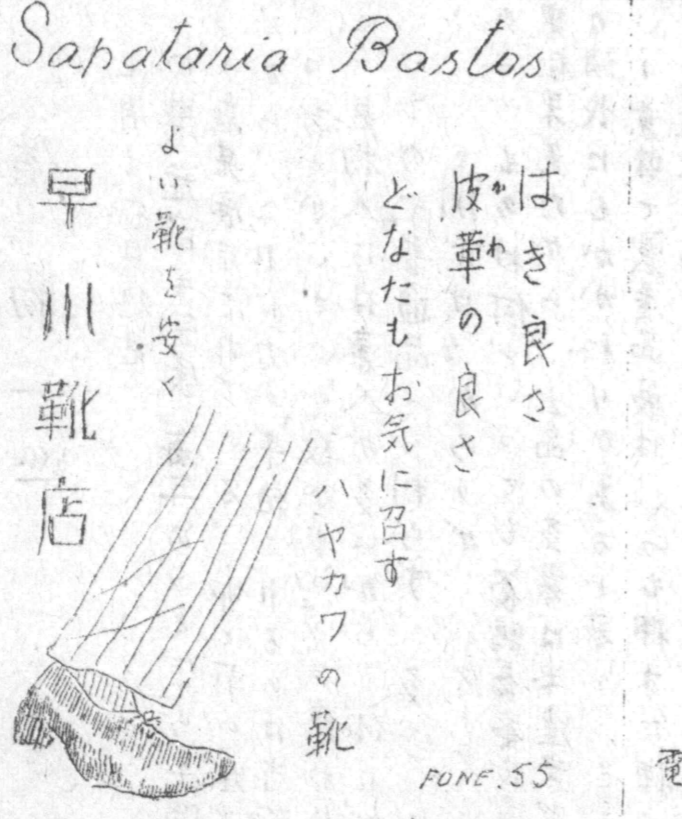 Sapataria Bastos
はき良さ
皮革の良さ
かわ
どなたもお気に召す
ハヤカワの靴
よい靴を安く
早川靴店
FONE.55
電